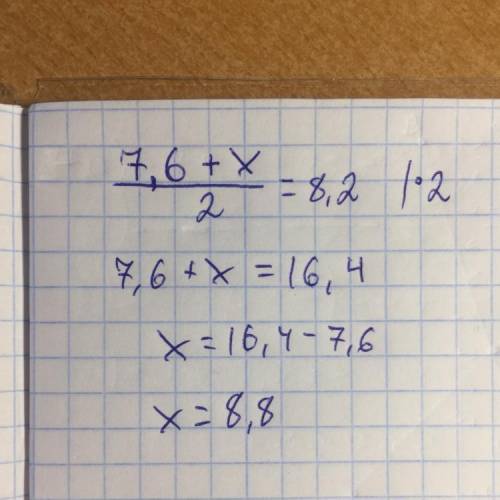 (7,6 + x)/2 = 8,2 |·2
7,6 + x = 16,4
x = 16,4 - 7,6
x = 8,8